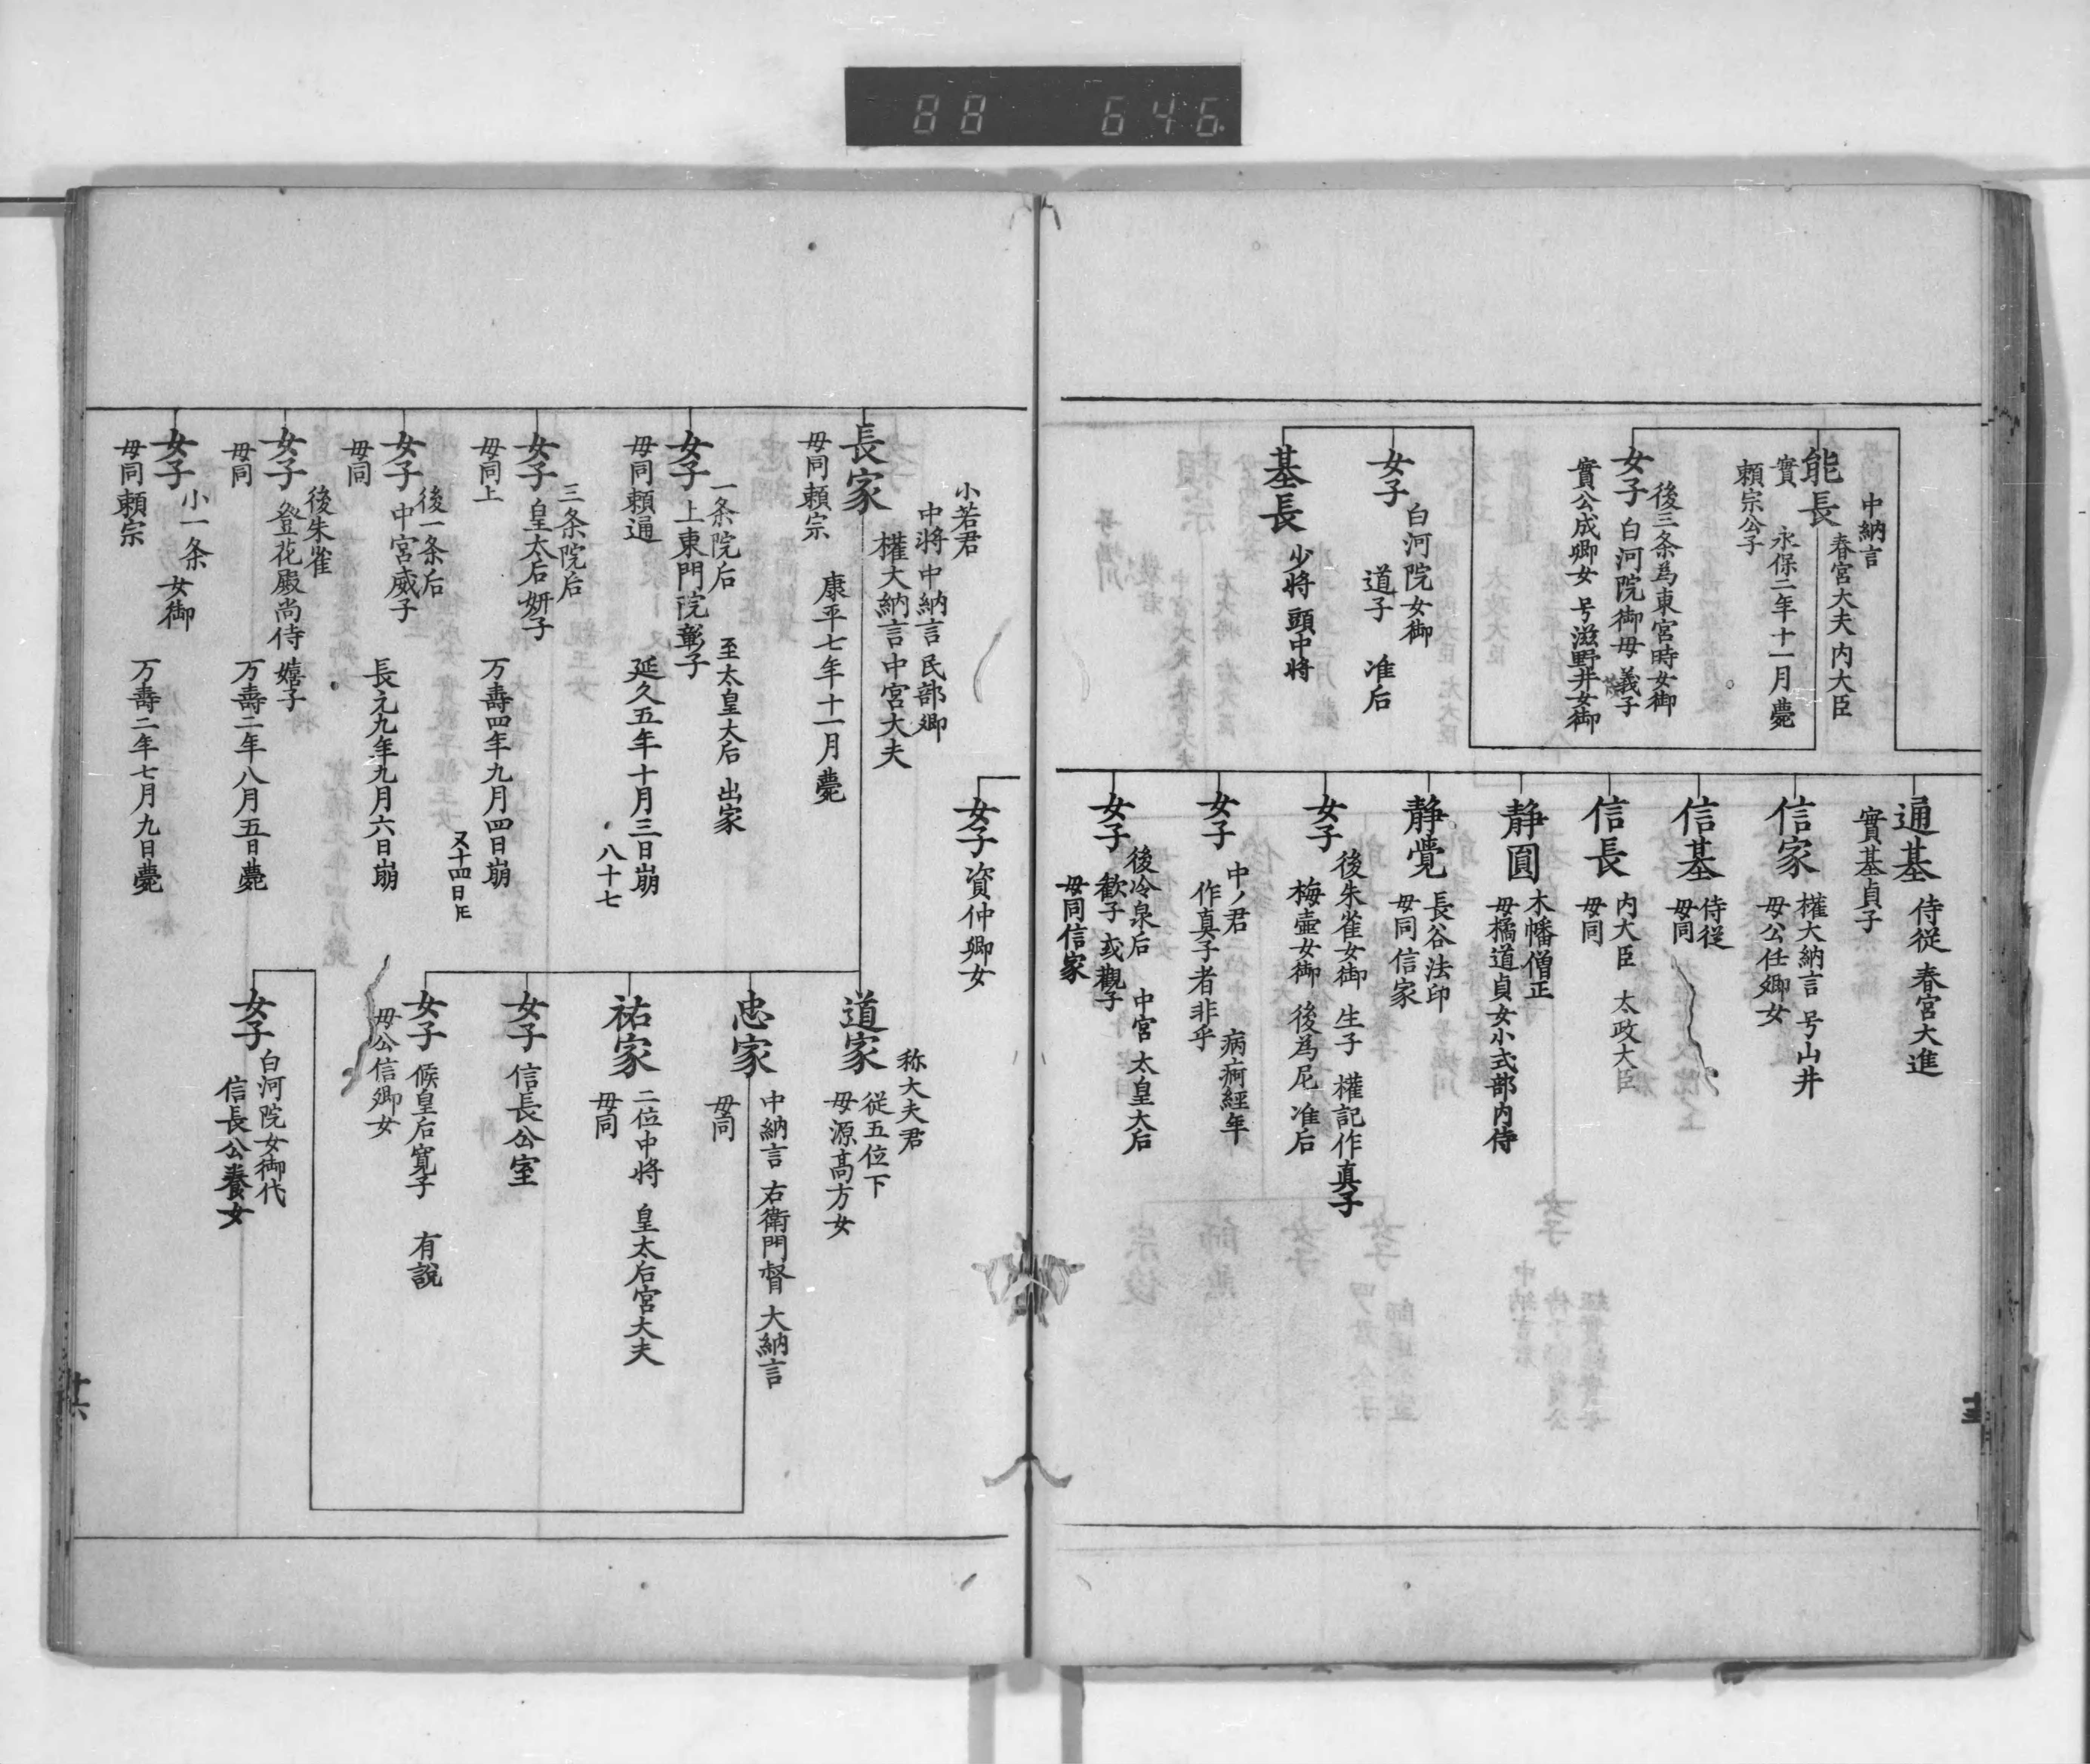 88 646
中納言
能長 春宮大夫 内大臣
永保二年十一月薨
實頼宗公子
後三条為東宮時女御
女子 白河院御母 義子
實公成卿女 号滋野井女御
白河院女御
女子 道子 准后
基長 少将 頭中将
通基 侍従 春宮大進
實基貞子
信家 權大納言 号山井
母公任卿女
信基 侍従
母同
信長 内大臣 太政大臣
母同
靜圓 木幡僧正
母橘道貞女小式部内侍
靜覺 長谷法印
母同信家
女子 後朱雀女御 生子 權記作真子
梅壷女御 後為尼 准后
女子 中ノ君 病痾經年
作真子者非乎
女子 後冷泉后 中宮 太皇大后
歓子 或觀子
母同信家
小若君
中将 中納言 民部卿
權大納言 中宮大夫
長家 康平七年十一月薨
母同頼宗
一条院后 至太皇大后 出家
女子 上東門院彰子
母同頼通 延久五年十月三日崩
八十七
三条院后
女子 皇太后妍子
母同上 万壽四年九月四日崩
又十四日庄
後一条后
女子 中宮威子
母同 長元九年九月六日崩
後朱雀
女子 登花殿尚侍 嬉子
母同 万壽二年八月五日薨
小一条女御
女子
母同頼宗 万壽二年七月九日薨
女子 資仲卿女
称大夫君
道家 従五位下
母源髙方女
忠家 中納言 右衛門督 大納言
母同
祐家 二位中将 皇太后宮大夫
母同
女子 信長公室
女子 候皇后寛子 有説
母公信卿女
女子 白河院女御代
信長公養女
十六